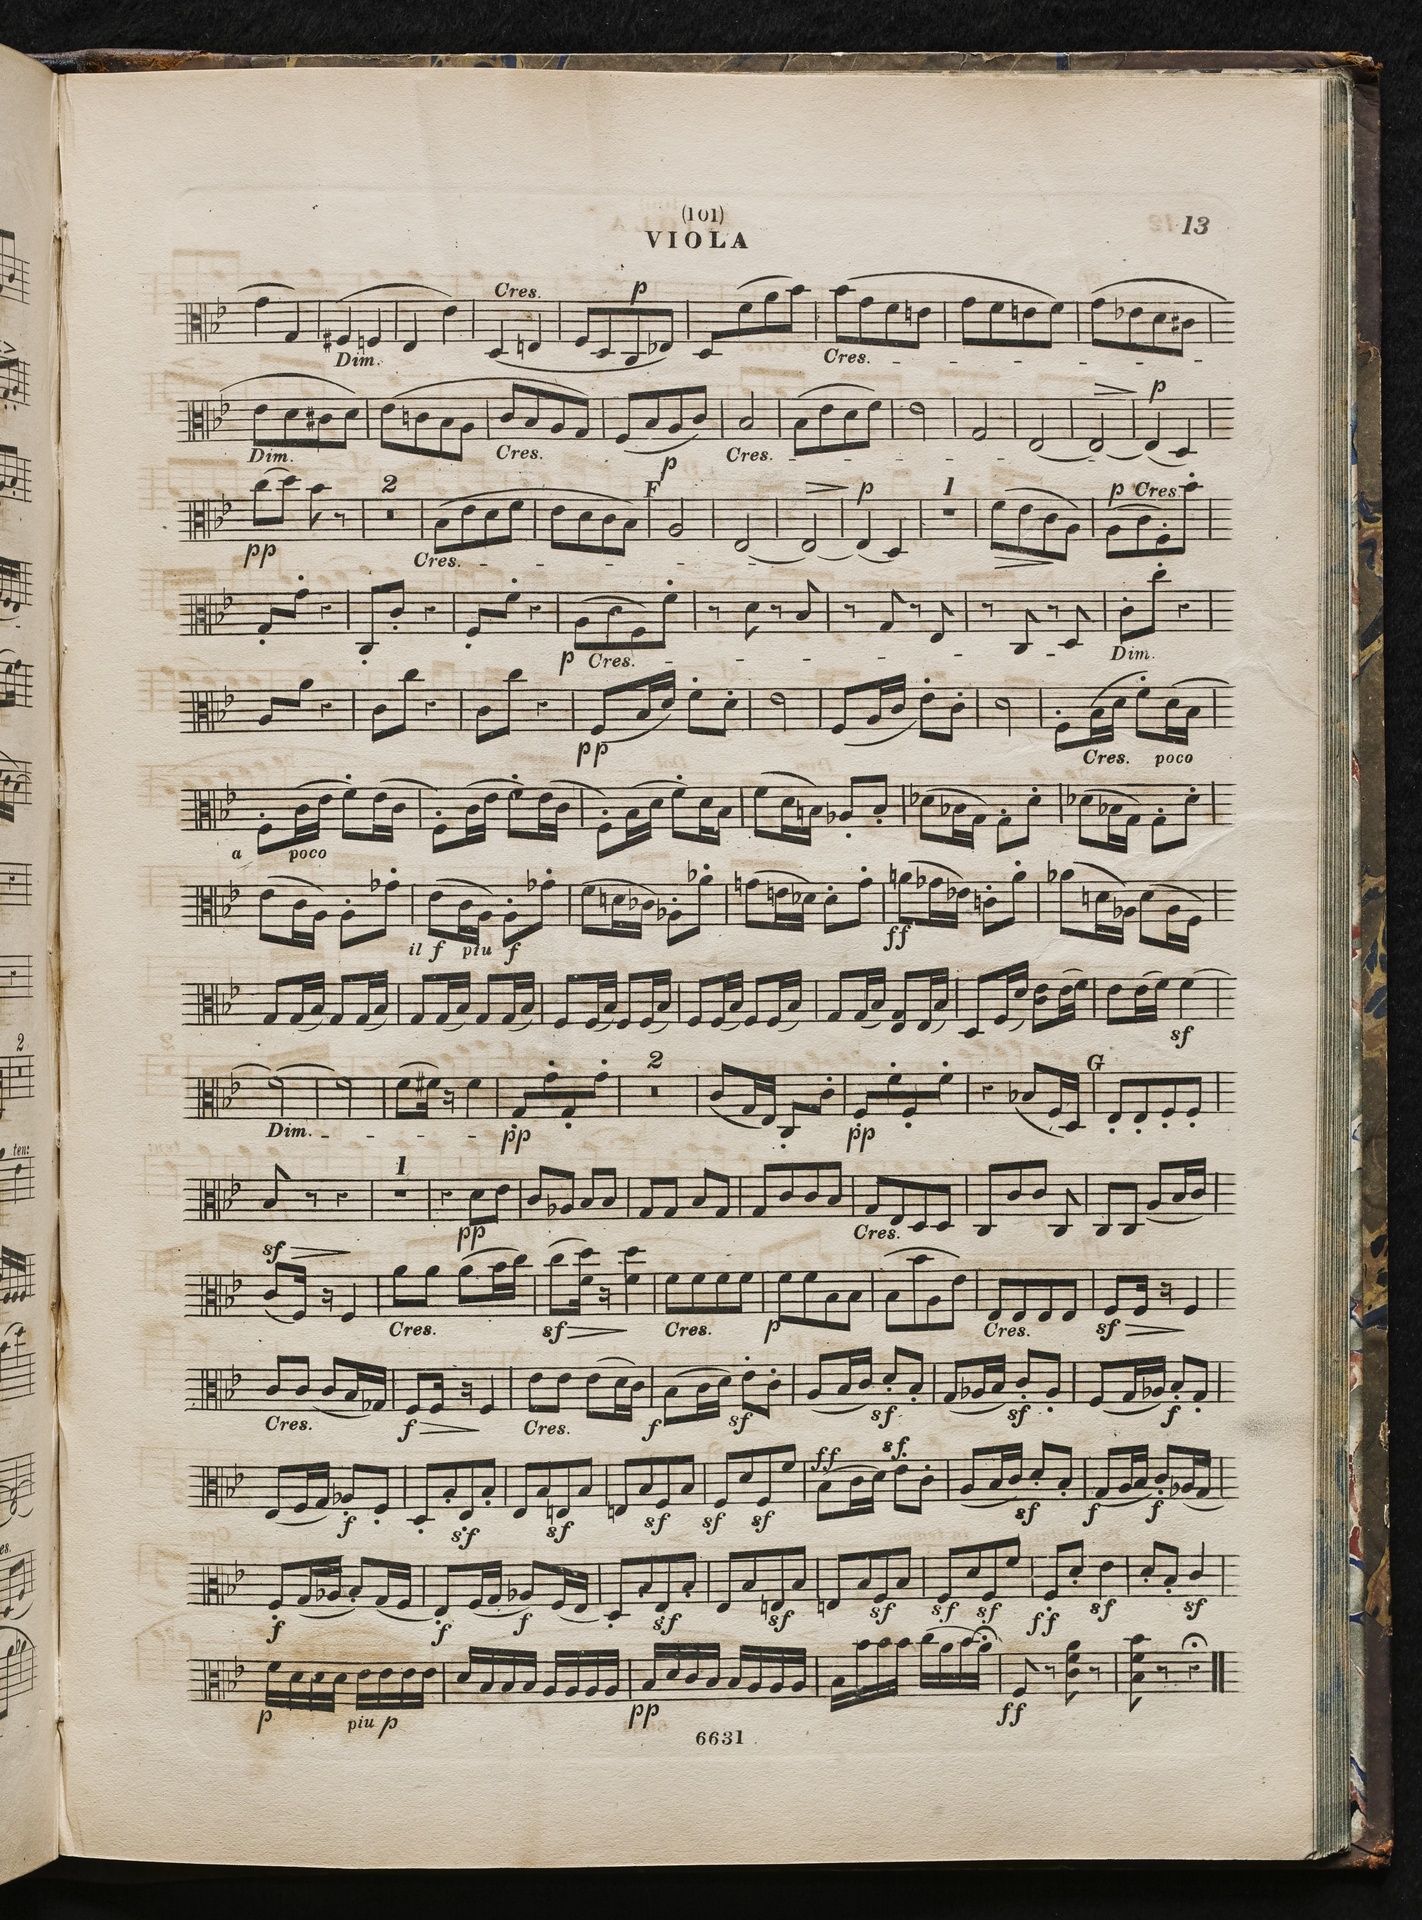 (101)
VIOLA
13
Cres. p
Dim. Cres.
p
Dim. Cres. p Cres.
2 F p 1 p Cres.
pp Cres.
p Cres. Dim.
pp Cres. poco
a poco
il f piu f ff
sf
2 G
Dim. pp pp
1
pp Cres.
sf
Cres. sf Cres. p Cres. sf
Cres. f Cres. f sf sf sf f
ff sf
f sf sf sf sf sf sf f f
f f f sf sf sf sf sf ff sf sf
p piu p pp ff
6631
2
ten:
es.